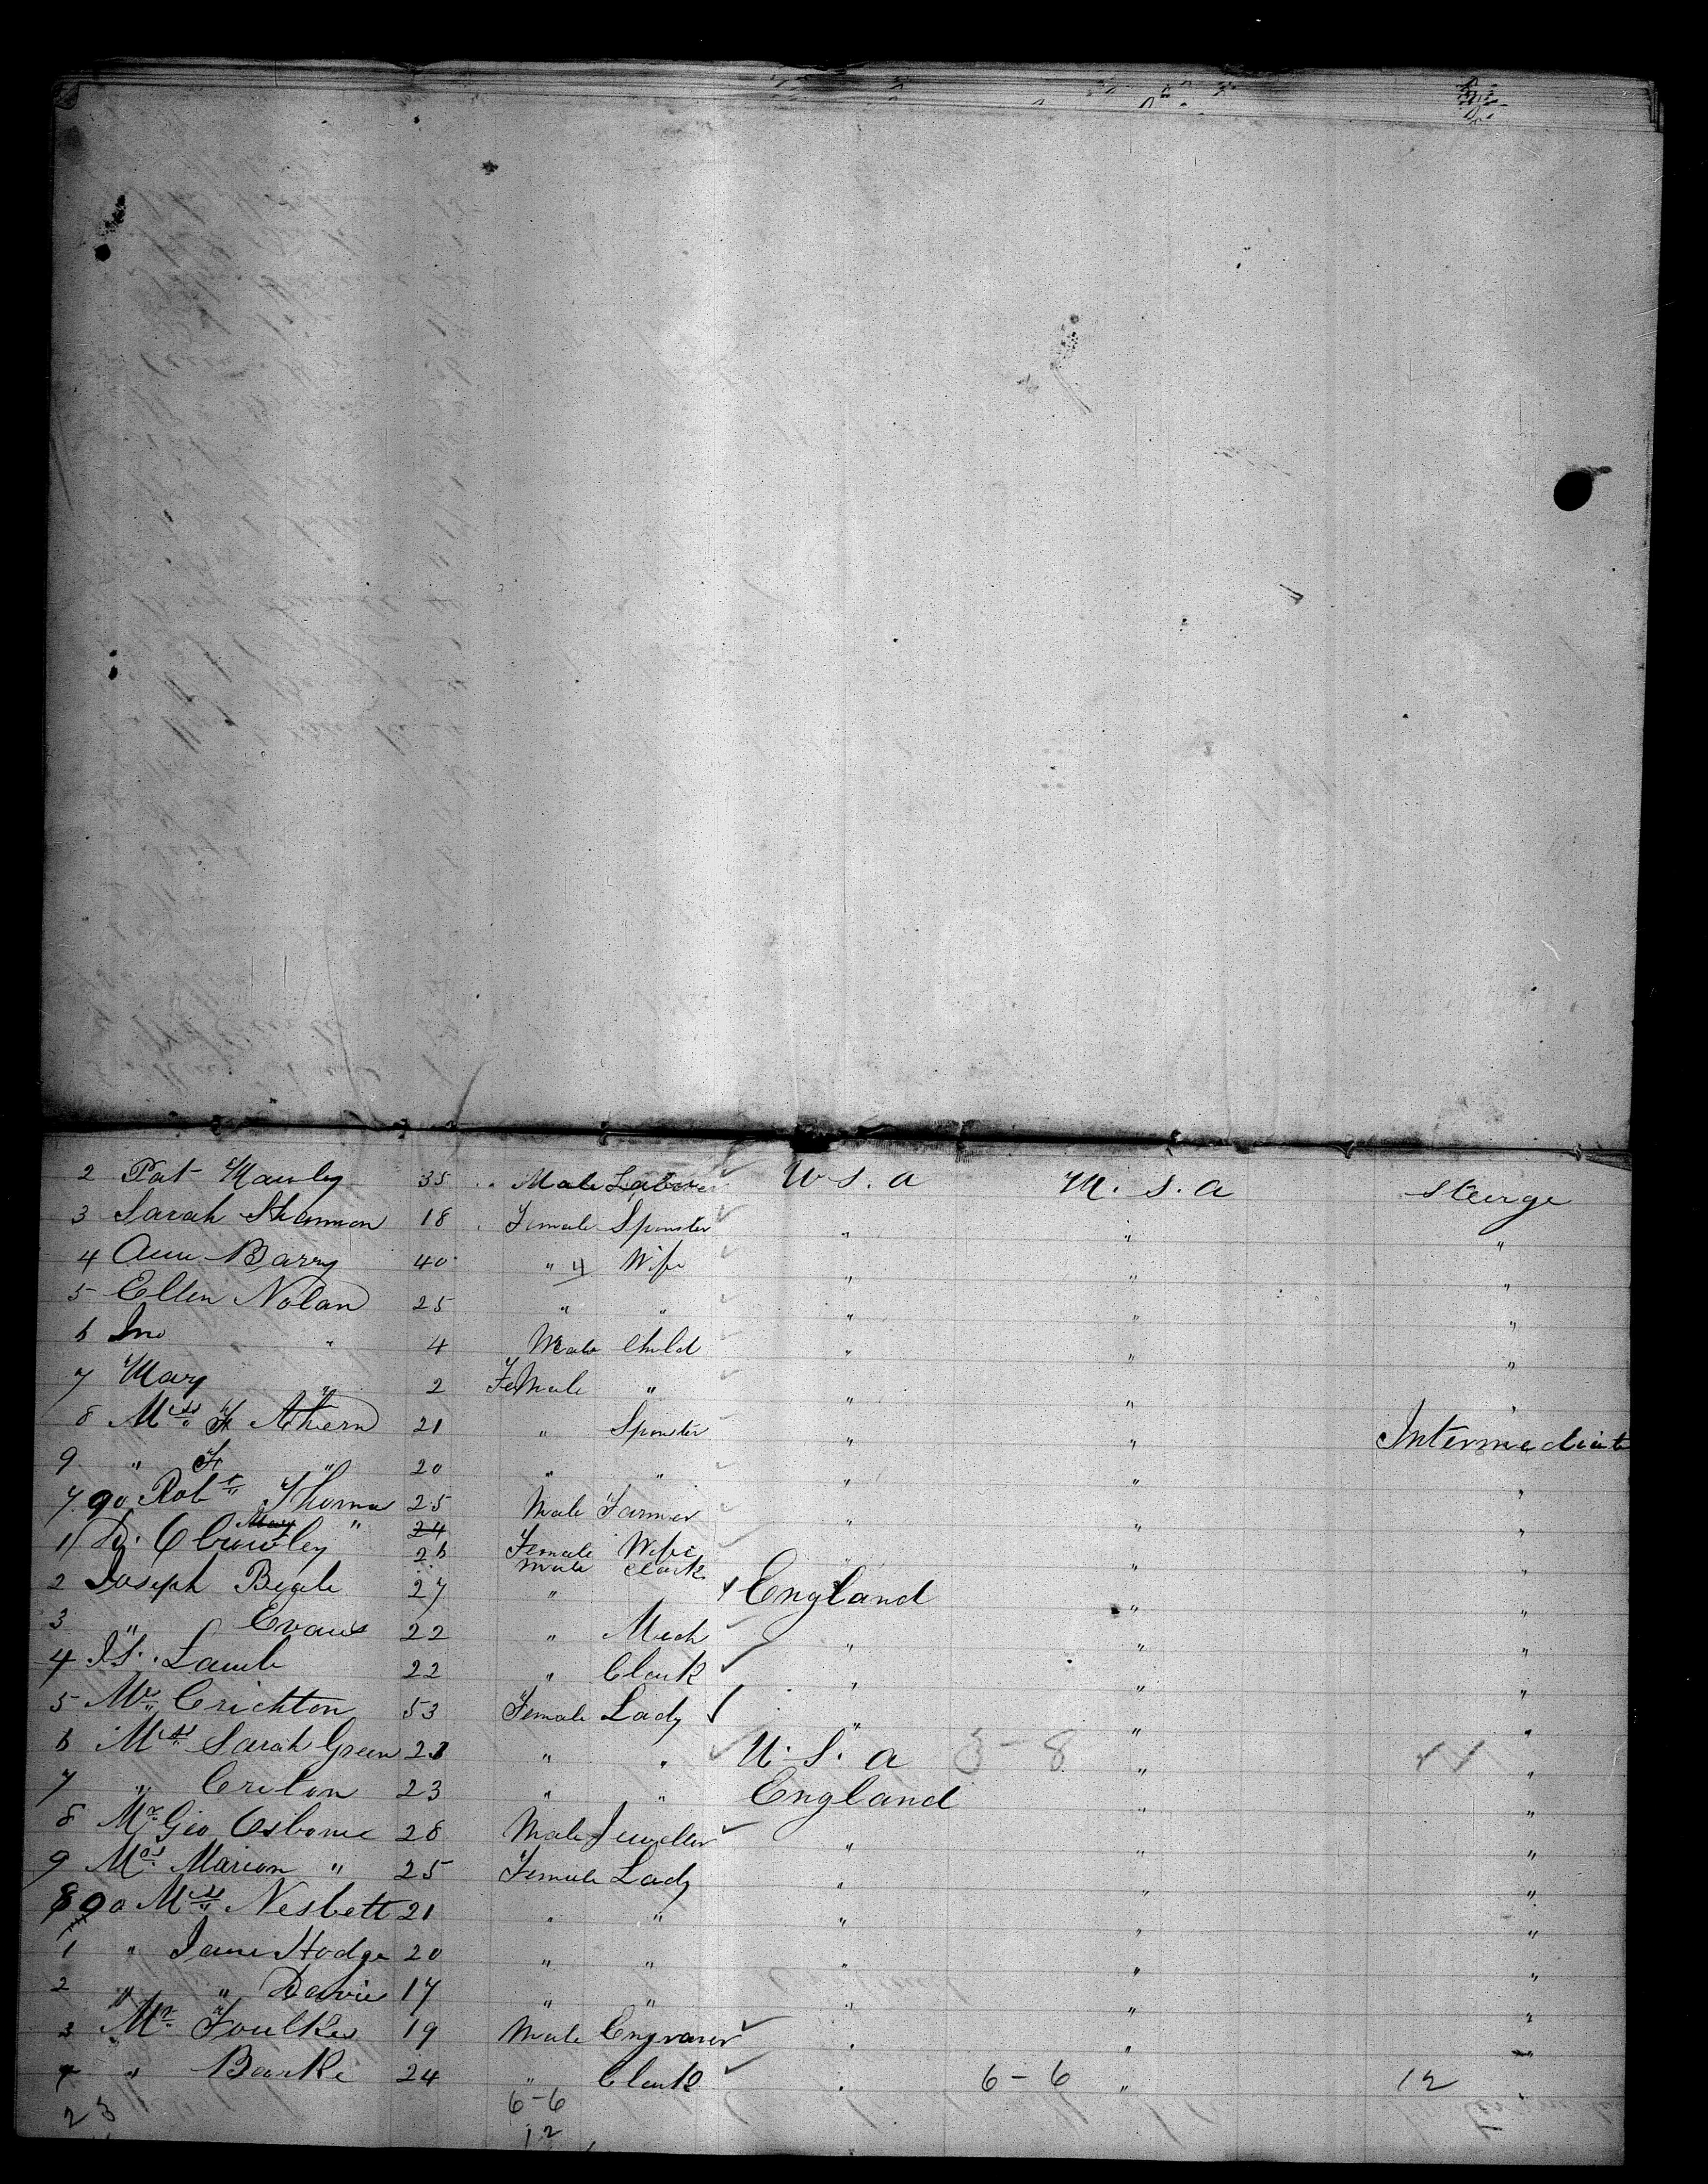 2 Pat Hawley 35 Male Labor U.S.A U.S.A Steerge
3 Sarah Shannon 18 Female Spinster " " "
4 Ann Barry 40 " 4 Wife " " "
5 Ellen Nolan 25 " " " " "
6 Jno " 4 Male Child " " "
7 Mary " 2 Female " " " "
8 Miss F Ahern 21 " Spinster " " Intermediate
9 " F " 20 " " " " "
790 Robt Thomas 25 Male Farmer " " "
Mary " 24 Female Wife
1 D. Crowley 26 Male Clark " " "
2 Joseph Beale 27 " England " "
3 " Evans 22 " Mech " " "
4 Lamb 22 " Clark " " "
5 Mrs Crichton 53 Female Lady " " "
6 Miss Sarah Green 23 " " U.S.A 3-8 " "
7 " Criton 23 " " England " "
8 Mr Geo Osborne 28 Male Jeweller " " "
9 Mrs Marion " 25 Female Lady " " "
800 Miss Nesbett 21 " " " " "
1 " Jane Hodge 20 " " " " "
2 " " Davies 17 " " " " "
3 Mr Foulkes 19 Male Engraver " " "
4 " Barke 24 " Clark " 6-6 " 12
23 6-6
12